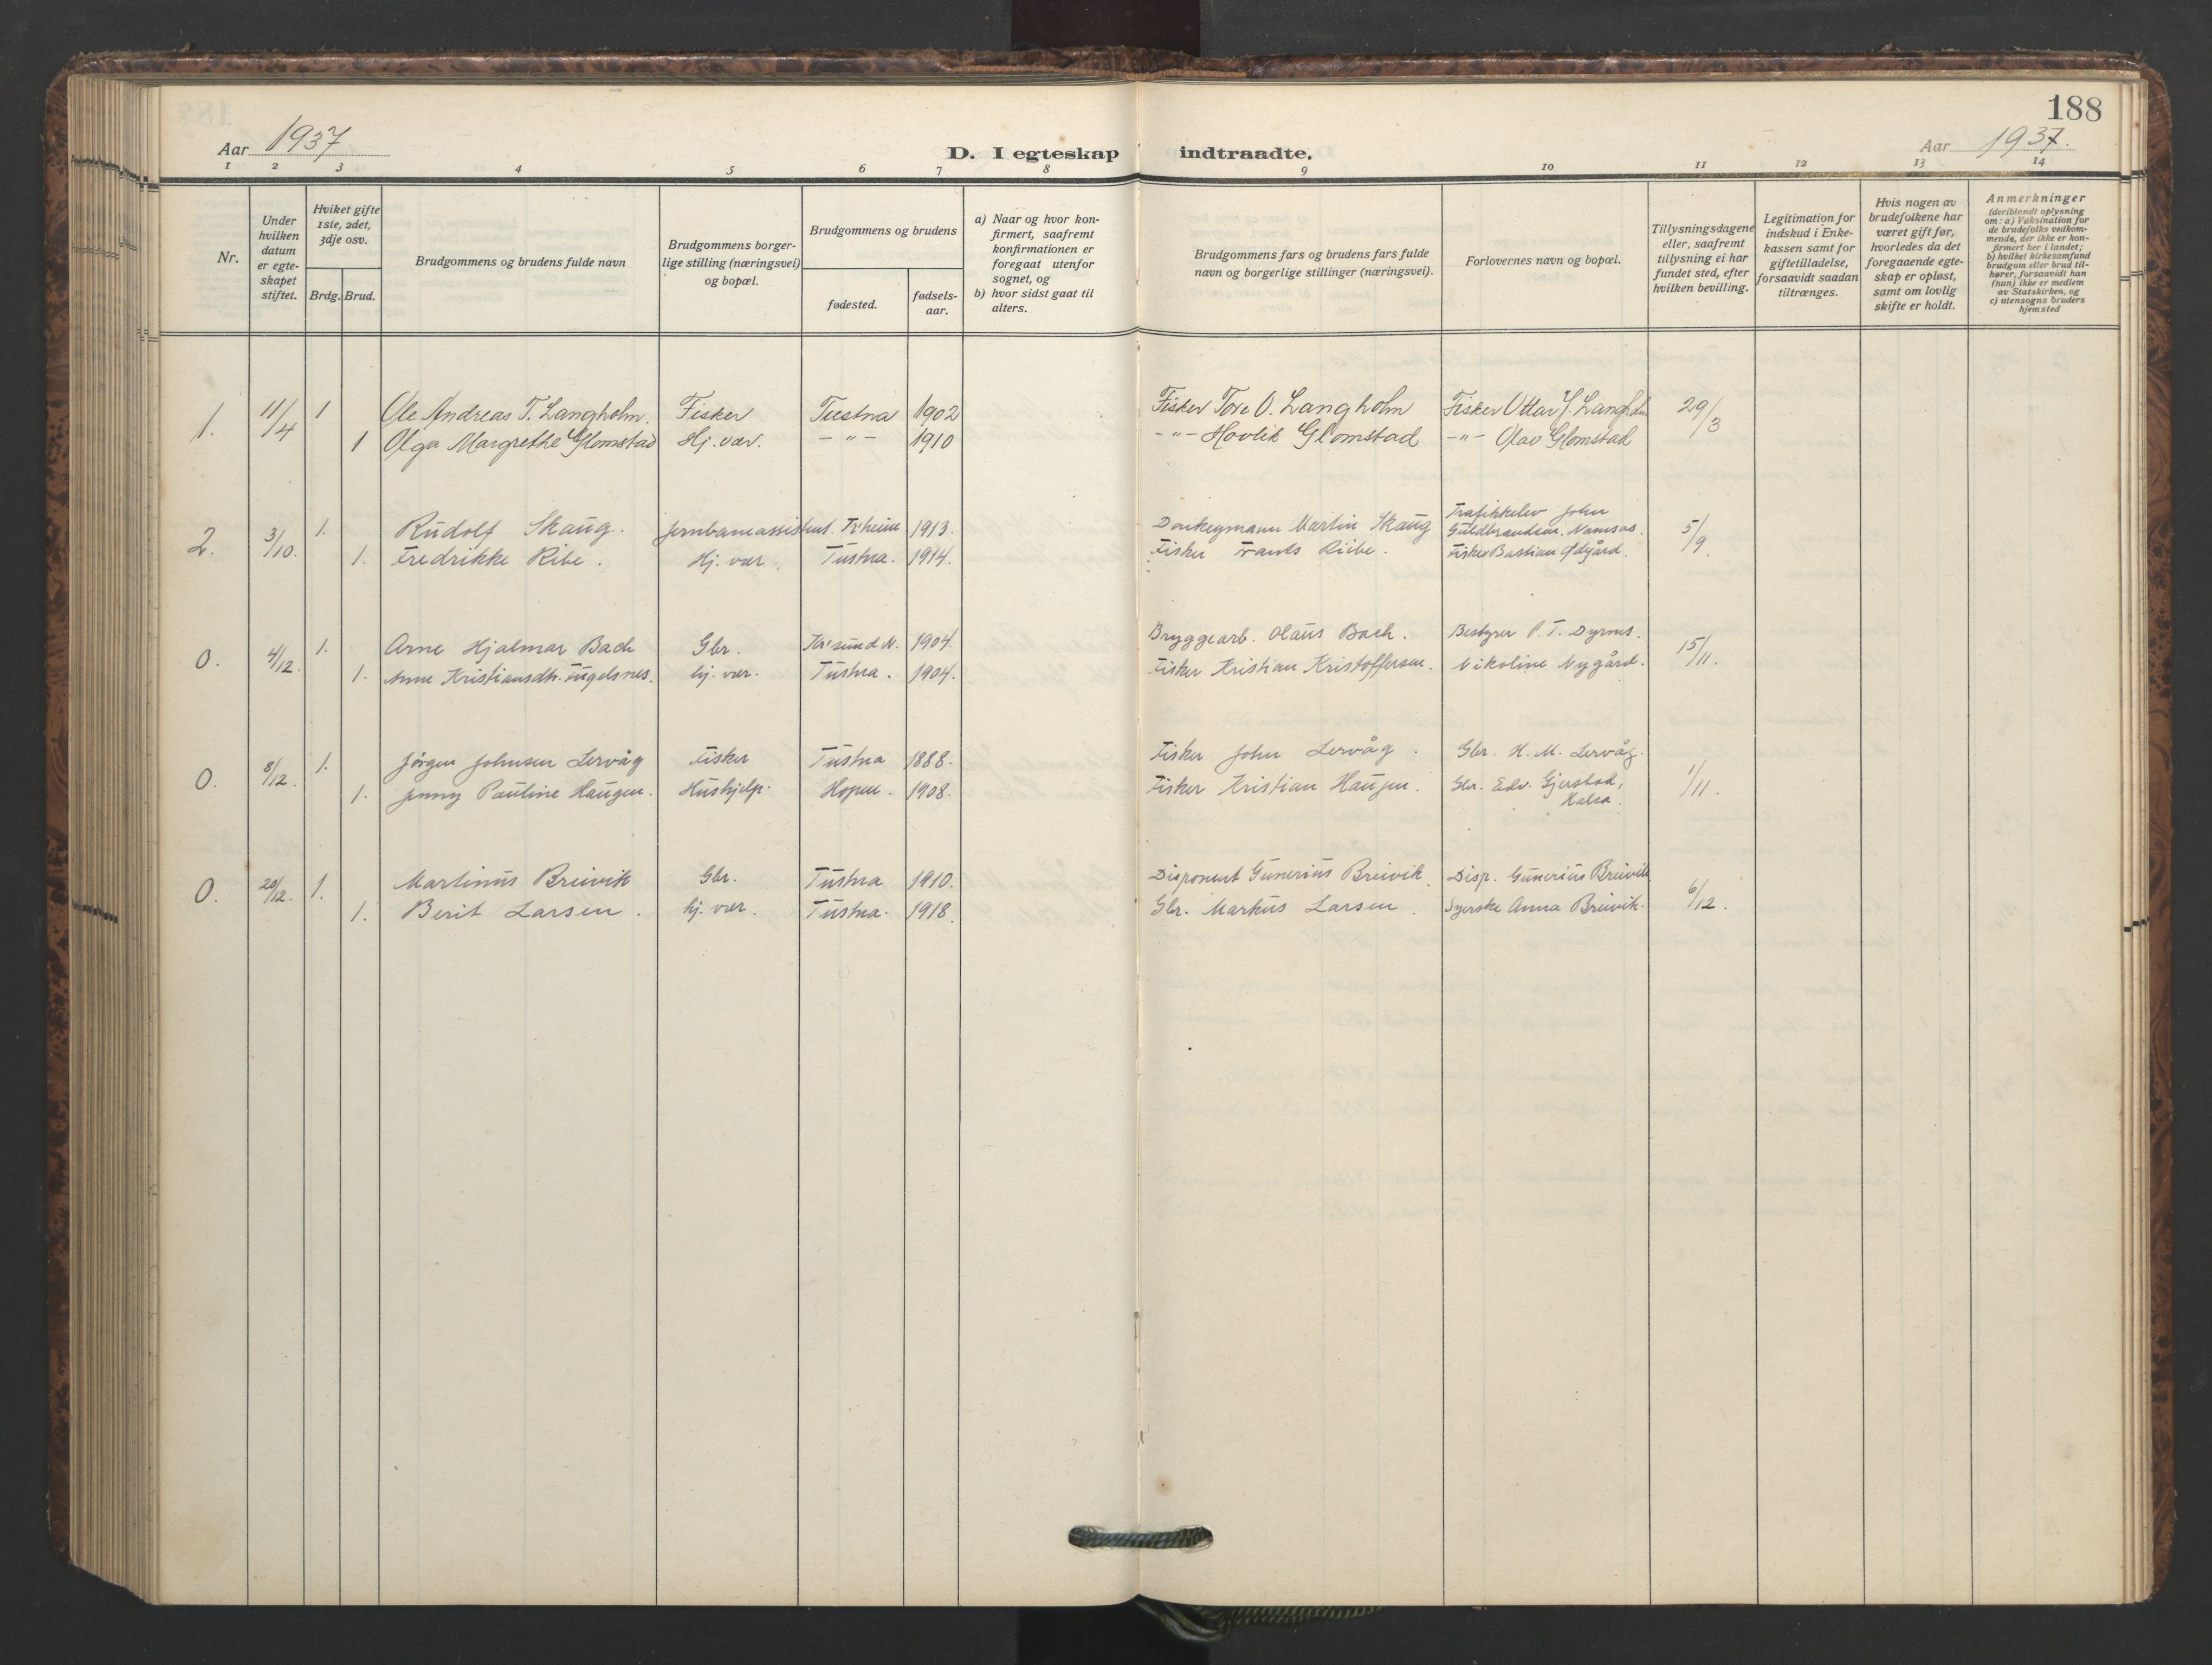 188
Aar 1937
D. I egteskap indtraadte.
Aar 1937.
1 2 3 4 5 6 7 8 9 10 11 12 13 14
Nr.
Under hvilken datum er egte-skapet stiftet.
Hviket gifte 1ste, 2det, 3dje osv.
Brdg. Brud.
Brudgommens og brudens fulde navn
Brudgommens borger-
lige stilling (næringsvei)
og bopæl.
Brudgommens og brudens
fødested.
fødsels-
aar.
a) Naar og hvor kon-
firmert, saafremt
konfirmationen er
foregaat utenfor
sognet, og
b) hvor sidst gaat til
alters.
Brudgommens fars og brudens fars fulde
navn og borgerlige stillinger (næringsvei).
Forlovernes navn og bopæl.
Tillysningsdagene
eller, saafremt
tillysning ei har
fundet sted, efter
hvilken bevilling.
Legitimation for
indskud i Enke-
kassen samt for
giftetilladelse,
forsaavidt saadan
tiltrænges.
Hvis nogen av
brudefolkene har
været gift før,
hvorledes da det
foregaaende egte-
skap er opløst,
samt om lovlig
skifte er holdt.
Anmerkninger
(deriblandt oplysning
om: a) Vaksination for
de brudefolks vedkom-
mende, der ikke er kon-
firmert her i landet;
b) hvilket kirkesamfund
brudgom eller brud til-
hører, forsaavidt han
(hun) ikke er medlem
av Statskirken, og
c) utensogns bruders
hjemsted
1. 11/4 1 Ole Andreas T. Langholm. Fisker Tustna 1902 Fisker Tore O. Langholm Fisker Ottar T. Langholm 29/3
1 Olga Margrethe Glomstad Hj. vær. -"- 1910 -"- Hovlik Glomstad -"- Olav Glomstad
2. 3/10. 1. Rudolf Skaug. Jernbaneassistent. Tr.heim 1913. Donkeymann Martin Skaug Trafikkelev John Guldbrandsen. Namsos. 5/9.
1. Fredrikke Ribe. Hj. vær. Tustna. 1914. Fisker Frants Ribe. Fisker Bastian Ødgård.
0. 4/12. 1. Arne Hjalmar Bach Gbr. Kr.sund N. 1904. Bryggearb. Olaus Bach. Bestyrer P. T. Dyrnes. 15/11.
1. Anne Kristiansdtr. Fugelsnes. hj. vær. Tustna. 1904. Fisker Kristian Kristoffersen. Nikoline Nygård.
0. 8/12. 1. Jørgen Johnsen Lervåg Fisker Tustna 1888. Fisker John Lervåg. Gbr. H. M. Lervåg. 1/11.
1. Jenny Pauline Haugen. Hushjelp. Hopen. 1908. Fisker Kristian Haugen. Gbr. Edv. Gjerstad, Halsa.
0. 20/12. 1. Martinus Breivik Gbr. Tustna 1910. Disponent Gunerius Breivik Disp. Gunerius Breivik 6/12.
1. Berit Larsen. hj. vær. Tustna. 1918. Gbr. Markus Larsen. Syerske Anna Breivik.